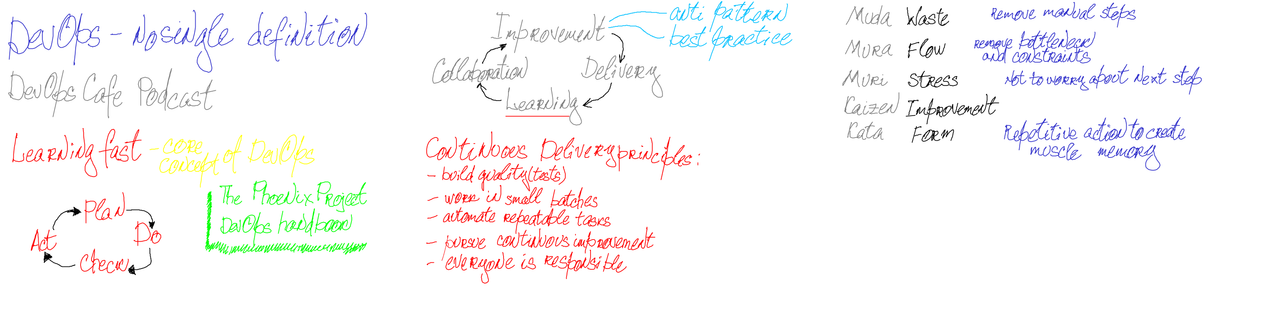 DevOps - No single definition
DevOps Cafe Podcast
Learning fast - core concept of DevOps
The Phoenix Project
DevOps handbook
Plan
Do
Check
Act
Improvement
anti pattern
best practice
Delivery
Learning
Collaboration
Continuous Delivery principles:
- build quality (tests)
- work in small batches
- automate repeatable tasks
- pursue continuous improvement
- everyone is responsible
Muda Waste Remove manual steps
Mura Flow remove bottleneck
and constraints
Muri Stress Not to worry about next step
Kaizen Improvement
Kata Form Repetitive action to create
muscle memory